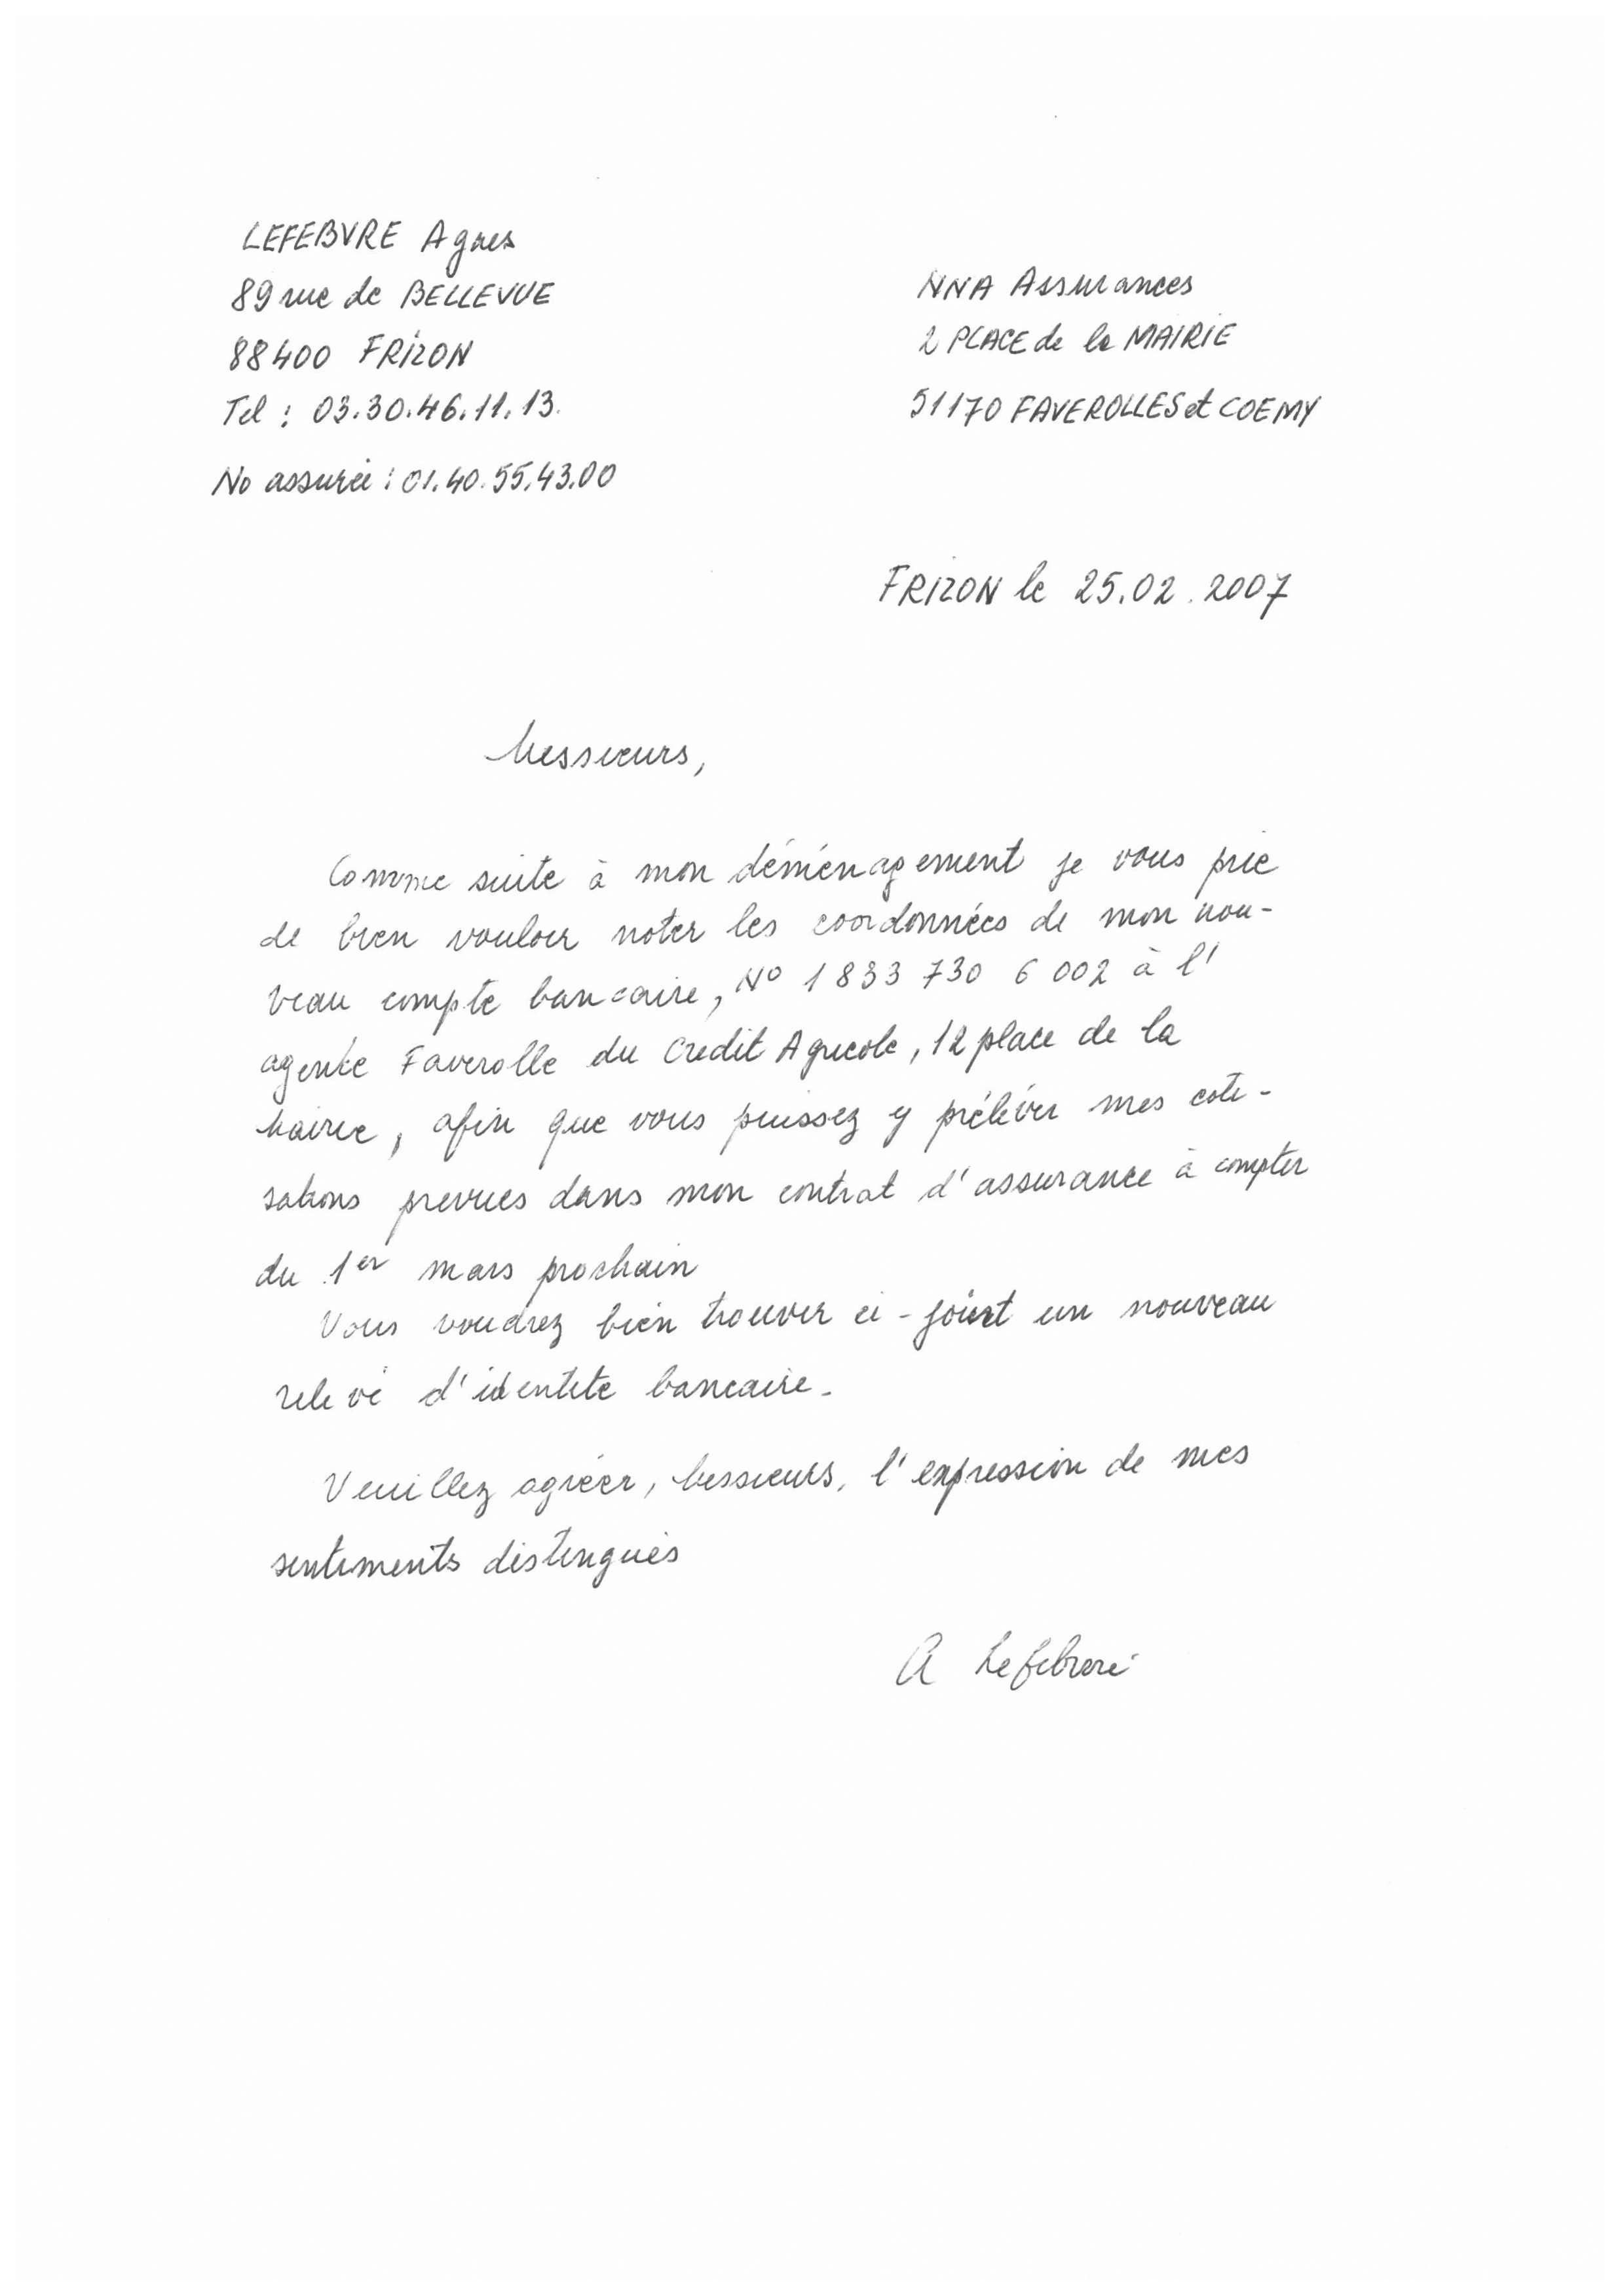 LEFEBVRE Agnes
89 rue de BELLEVUE
88400 FRIZON
Tel : 03.30.46.11.13.
No assurée : 01.40.55.43.00
NNA Assurances
2 PLACE de la MAIRIE
51170 FAVEROLLES et COEMY
FRIZON le 25.02.2007
Messieurs,
Comme suite à mon déménagement je vous prie
de bien vouloir noter les coordonnées de mon nou-
veau compte bancaire, N° 1833 730 6 002 à l'
agence Faverolle du Credit Agricole, 12 place de la
Mairie, afin que vous puissez y préléver mes coti-
sations prevues dans mon contrat d'assurance à compter
du 1er mars prochain
Vous voudrez bien trouver ci-joint un nouveau
relevé d'identité bancaire.
Veuillez agréer, Messieurs, l'expression de mes
sentiments distingués
A Lefebvre